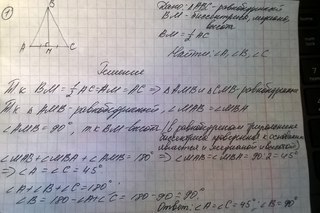 1
B
A M C
Дано: △ABC - равнобедренный
BM - биссектриса, медиана,
высота
BM = 1/2 AC
Найти: ∠A, ∠B, ∠C
Решение
Т.к BM = 1/2 AC = AM = MC => △AMB и △CMB - равнобедрен
Т.к △AMB - равнобедренный, ∠MAB = ∠MBA
∠AMB = 90°, т.к BM - высота (в равнобедренном треугольнике
биссектриса проведенная к основанию
является и медианой и высотой)
∠MAB + ∠MBA + ∠AMB = 180° => ∠MAB = ∠MBA = 90:2 = 45°
=> ∠A = ∠C = 45°
∠A + ∠B + ∠C = 180°
∠B = 180° - ∠A + ∠C = 180 - 90 = 90°
Ответ: ∠A = ∠C = 45° ∠B = 90°